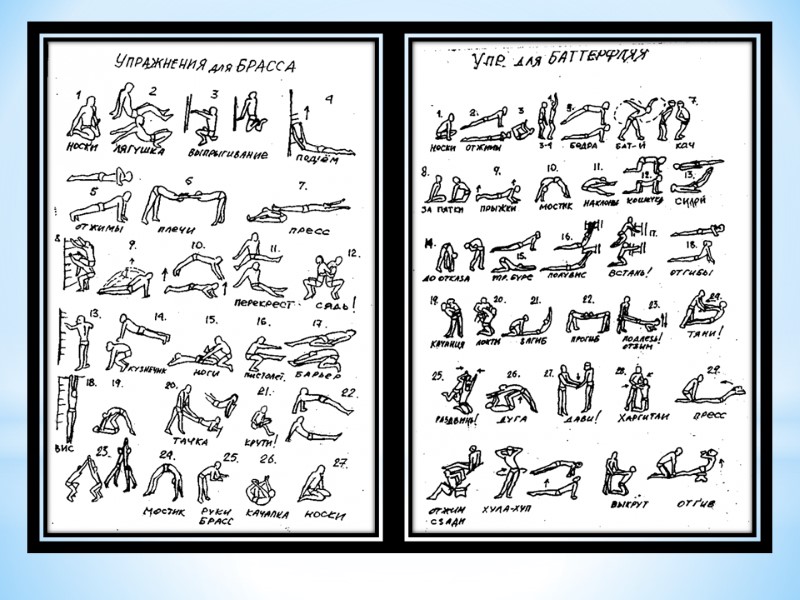 Упражнения для БРАССА
1 2 3 4
НОСКИ ЛЯГУШКА ВЫПРЫГИВАНИЕ ПОДЪЁМ
5 6 7.
ОТЖИМЫ ПЛЕЧИ ПРЕСС
8 9. 10. 11. 12.
ПЕРЕКРЕСТ СЯДЬ!
13. 14. 15. 16. 17.
КУЗНЕЧИК НОГИ ПИСТОЛЕТ. БАРЬЕР
18. 19. 20. 21. 22.
ВИС ТАЧКА КРУТИ!
23. 24. 25. 26. 27.
МОСТИК РУКИ БРАСС КАЧАЛКА НОСКИ
УПР. для БАТТЕРФЛЯЯ
1. 2. 3 4 5. 7.
НОСКИ ОТЖИМЫ 3-4 БЁДРА БАТ-Й КАЧ
8. 9. 10. 11. 12. 13.
ЗА ПЯТКИ ПРЫЖКИ МОСТИК НАКЛОНЫ КОШЕЧКА СИДЕЙ
14. 15. 16. 17. 18.
ДО ОТКАЗА ПОЛУВИС ВСТАНЬ! ОТГИБЫ
19. 20. 21. 22. 23. 24.
КАЧАНИЯ ЛОКТИ ЗАГИБ ПРОГИБ ПОДЛЕЗЬ! ОТЖИМ ТЯНИ!
25. 26. 27. 28. 29.
РАЗДВИНЬ! ДУГА ДАВИ! ХАРГИТАИ ПРЕСС
ОТЖИМ СЗАДИ ХУЛА-ХУП ВЫКРУТ ОТГИБ